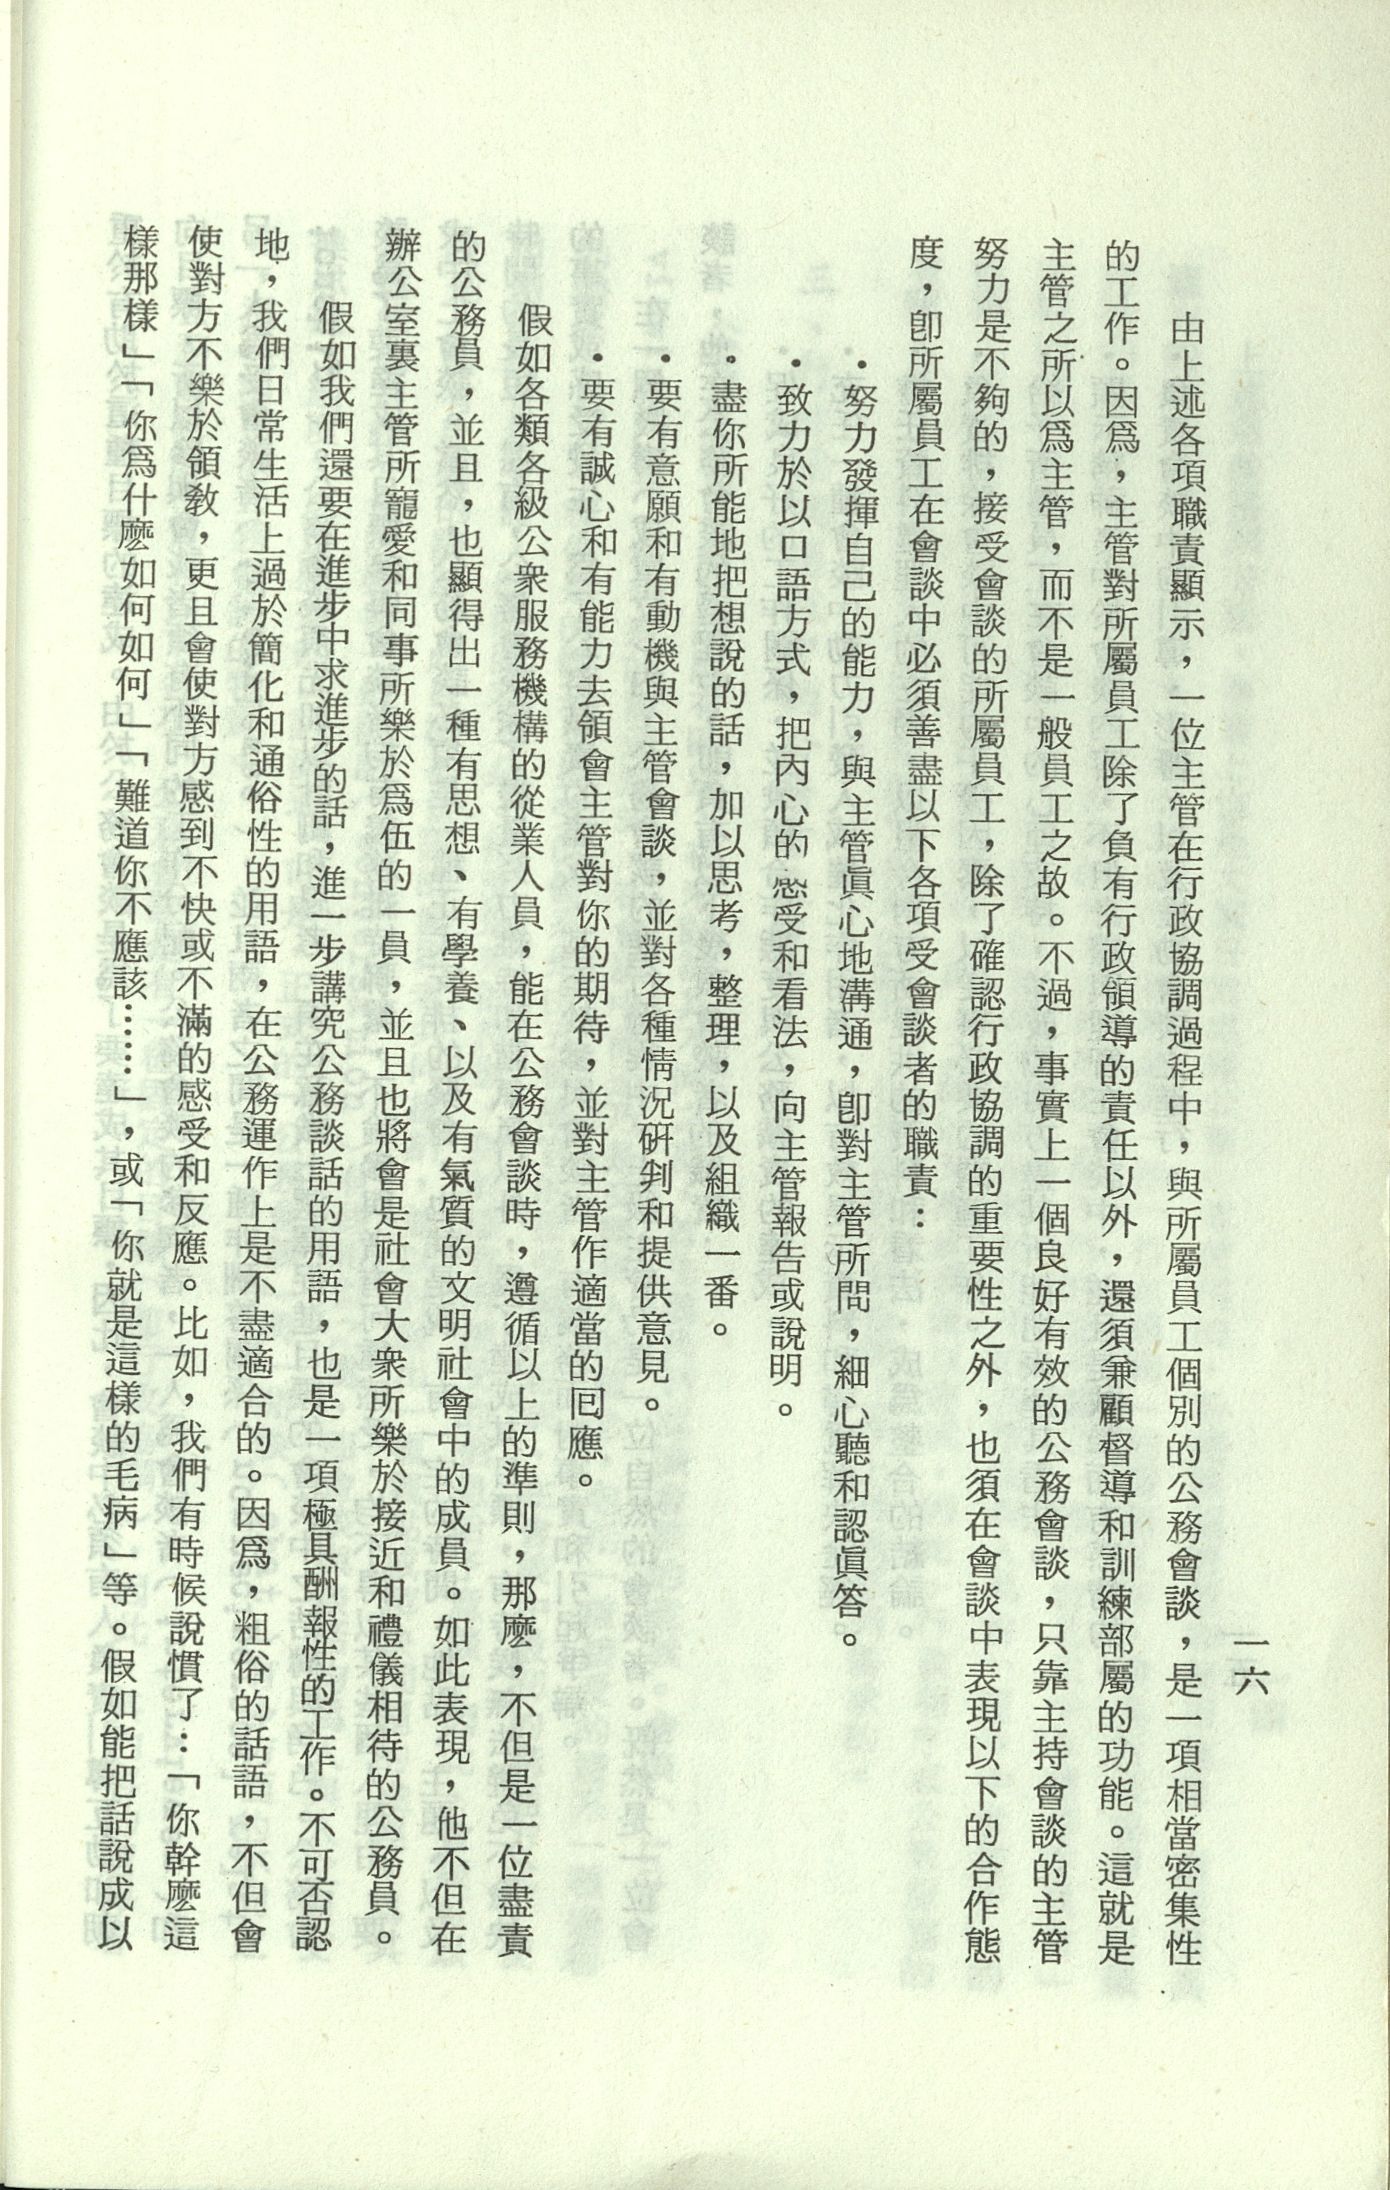 一六
由上述各項職責顯示，一位主管在行政協調過程中，與所屬員工個別的公務會談，是一項相當密集性
的工作。因爲，主管對所屬員工除了負有行政領導的責任以外，還須兼顧督導和訓練部屬的功能。這就是
主管之所以爲主管，而不是一般員工之故。不過，事實上一個良好有效的公務會談，只靠主持會談的主管
努力是不夠的，接受會談的所屬員工，除了確認行政協調的重要性之外，也須在會談中表現以下的合作態
度，卽所屬員工在會談中必須善盡以下各項受會談者的職責：
・努力發揮自己的能力，與主管眞心地溝通，卽對主管所問，細心聽和認眞答。
・致力於以口語方式，把內心的感受和看法，向主管報告或說明。
・盡你所能地把想說的話，加以思考，整理，以及組織一番。
・要有意願和有動機與主管會談，並對各種情況硏判和提供意見。
・要有誠心和有能力去領會主管對你的期待，並對主管作適當的囘應。
假如各類各級公衆服務機構的從業人員，能在公務會談時，遵循以上的準則，那麽，不但是一位盡責
的公務員，並且，也顯得出一種有思想、有學養、以及有氣質的文明社會中的成員。如此表現，他不但在
辦公室裏主管所寵愛和同事所樂於爲伍的一員，並且也將會是社會大衆所樂於接近和禮儀相待的公務員。
假如我們還要在進步中求進步的話，進一步講究公務談話的用語，也是一項極具酬報性的工作。不可否認
地，我們日常生活上過於簡化和通俗性的用語，在公務運作上是不盡適合的。因爲，粗俗的話語，不但會
使對方不樂於領敎，更且會使對方感到不快或不滿的感受和反應。比如，我們有時候說慣了：「你幹麽這
樣那樣」「你爲什麽如何如何」「難道你不應該……」，或「你就是這樣的毛病」等。假如能把話說成以